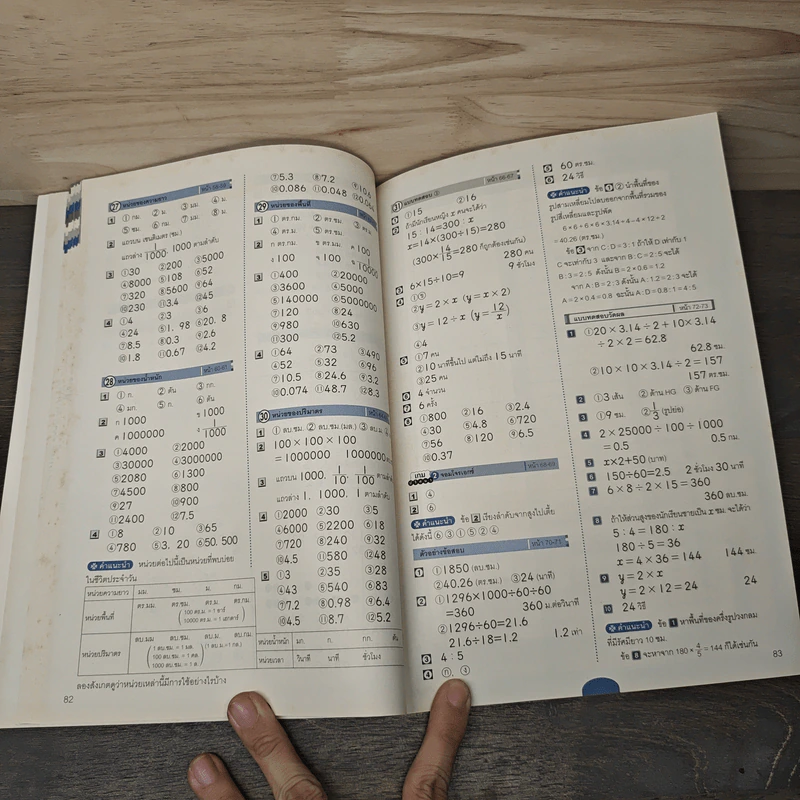 27 หน่วยของความยาว
1 ① กม. ② ม. ③ มม. ④ ม.
⑤ ซม. ⑥ กม. ⑦ มม. ⑧ ม.
2 แถวบน เซนติเมตร (ซม.)
แถวล่าง 1/1000 1000 ตามลำดับ
3 ①30 ②200 ③5000
④8000 ⑤108 ⑥52
⑦320 ⑧5600 ⑨64
⑩230 ⑪3.4 ⑫45
4 ①4 ②23 ③6
④24 ⑤1.98 ⑥20.8
⑦8.5 ⑧0.3 ⑨2.6
⑩1.8 ⑪0.67 ⑫4.2
28 หน่วยของน้ำหนัก
1 ① ก. ② ตัน ③ กก.
④ มก. ⑤ ก. ⑥ ตัน
2 ก 1000 ข 1000
ค 1000000 ง 1/1000
3 ①4000 ②2000
③30000 ④3000000
⑤2080 ⑥1300
⑦4500 ⑧800
⑨27 ⑩900
⑪2400 ⑫7.5
4 ①8 ②10 ③365
④780 ⑤3.20 ⑥50.500
คำแนะนำ หน่วยต่อไปนี้เป็นหน่วยที่พบบ่อย
ในชีวิตประจำวัน
หน่วยความยาว มม. ซม. ม. กม.
หน่วยพื้นที่ ตร.มม. ตร.ซม. ตร.ม. ตร.กม.
หน่วยปริมาตร ลบ.มม ลบ.ซม. ลบ.ม. ลบ.กม.
ลองสังเกตดูว่าหน่วยเหล่านี้มีการใช้อย่างไรบ้าง
82
⑦5.3 ⑧7.2 ⑨10.6
⑩0.086 ⑪0.048
29 หน่วยของพื้นที่
1 ① ตร.กม. ② ตร.ซม.
④ ตร.ม. ⑤ ตร.ซม.
2 ก ตร.กม. ข ตร.มม. ค 100
ง 100 จ 100
3 ①400 ②20000
③3600 ④5000
⑤140000 ⑥5000000
⑦120 ⑧24
⑨980 ⑩630
⑪300 ⑫5.2
4 ①64 ②73 ③490
④52 ⑤32 ⑥96
⑦10.5 ⑧24.6 ⑨3.2
⑩0.074 ⑪48.7 ⑫8.3
30 หน่วยของปริมาตร
1 ① ลบ.ซม. ② ลบ.ซม. (มล.) ③ ลบ.ม.
2 100×100×100
=1000000 1000000
3 แถวบน 1000. 1/10 1/100
แถวล่าง 1. 1000. 1 ตามลำดับ
4 ①2000 ②30 ③5
④6000 ⑤2200 ⑥18
⑦720 ⑧240 ⑨32
⑩4.5 ⑪580 ⑫48
5 ①3 ②35 ③28
④43 ⑤540 ⑥83
⑦7.2 ⑧0.98 ⑨6.4
⑩4.5 ⑪8.7 ⑫5.2
หน่วยน้ำหนัก มก. ก. กก. ตัน
หน่วยเวลา วินาที นาที ชั่วโมง
31 แบบทดสอบ หน้า 66-67
①15 ②16
ถ้ามีนักเรียนหญิง x คนจะได้ว่า
15 : 14=300 : x
x=14×(300÷15)=280
(300×14/15=280 ก็ถูกต้องเช่นกัน)
280 คน
6×15÷10=9 9 ชั่วโมง
①③
②y=2×x (y=x×2)
③y=12÷x (y=12/x)
④4
①7 คน
②10 นาทีขึ้นไป แต่ไม่ถึง 15 นาที
③25 คน
4 จำนวน
6 ครั้ง
①800 ②16 ③2.4
④30 ⑤4.8 ⑥720
⑦56 ⑧120 ⑨6.5
⑩0.37
เกม 2 จอมโจรเอกซ์ หน้า 68-69
1 4
2 6
คำแนะนำ ข้อ 2 เรียงลำดับจากสูงไปเตี้ย
ได้ดังนี้ 6 3 1 5 2 4
ตัวอย่างข้อสอบ หน้า 70-71
1 ①1850 (ลบ.ซม.)
②40.26 (ตร.ซม.) ③24 (นาที)
2 ①1296×1000÷60÷60
=360 360 ม.ต่อวินาที
②1296÷60=21.6
21.6÷18=1.2 1.2 เท่า
3 4 : 5
4 ก, ง
60 ตร.ซม.
24 วิธี
คำแนะนำ ข้อ 1 ② นำพื้นที่ของ
รูปสามเหลี่ยมไปลบออกจากพื้นที่รวมของ
รูปสี่เหลี่ยมและรูปพัด
6×6+6×6×3.14÷4−6×12÷2
=40.26 (ตร.ซม.)
C จะเท่ากับ 3 และจาก B : C=2:5 จะได้
B:3=2:5 ดังนั้น B=2×0.6=1.2
จาก A:B=2:3 ดังนั้น A:1.2=2:3 จะได้
A=2×0.4=0.8 ฉะนั้น A:D=0.8:1=4:5
แบบทดสอบวัดผล หน้า 72-73
1 ①20×3.14÷2+10×3.14
÷2×2=62.8
62.8 ซม.
②10×10×3.14÷2=157
157 ตร.ซม.
2 ①3 เส้น ②ด้าน HG ③ด้าน FG
3 ①9 ซม. ②1/3 (รูปย่อ)
4 2×25000÷100÷1000
=0.5 0.5 กม.
5 x×2+50 (บาท)
6 150÷60=2.5 2 ชั่วโมง 30 นาที
7 6×8÷2×15=360
360 ลบ.ซม.
8 ถ้าให้ส่วนสูงของนักเรียนชายเป็น x ซม. จะได้ว่า
5 : 4=180 : x
180÷5=36
x=4×36=144 144 ซม.
9 y=2×x
y=2×12=24 24
10 24 วิธี
คำแนะนำ ข้อ 1 หาพื้นที่ของครึ่งรูปวงกลม
ที่มีรัศมียาว 10 ซม.
ข้อ 8 จะหาจาก 180×4/5=144 ก็ได้เช่นกัน
83